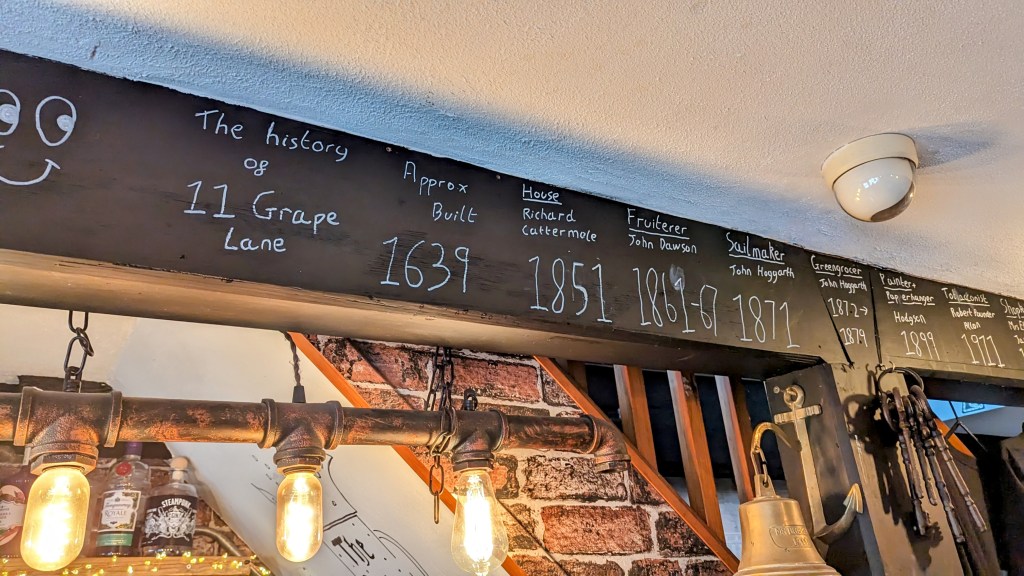 The history
of
11 Grape
Lane
Approx
Built
1639
House
Richard
Cattermole
1851
Fruiterer
John Dawson
1861-67
Sailmaker
John Hoggarth
1871
Greengrocer
John Hoggarth
1872→
1879
Painter +
Paperhanger
Hodgson
1899
Tobacconist
Robert
Allan
1911
The